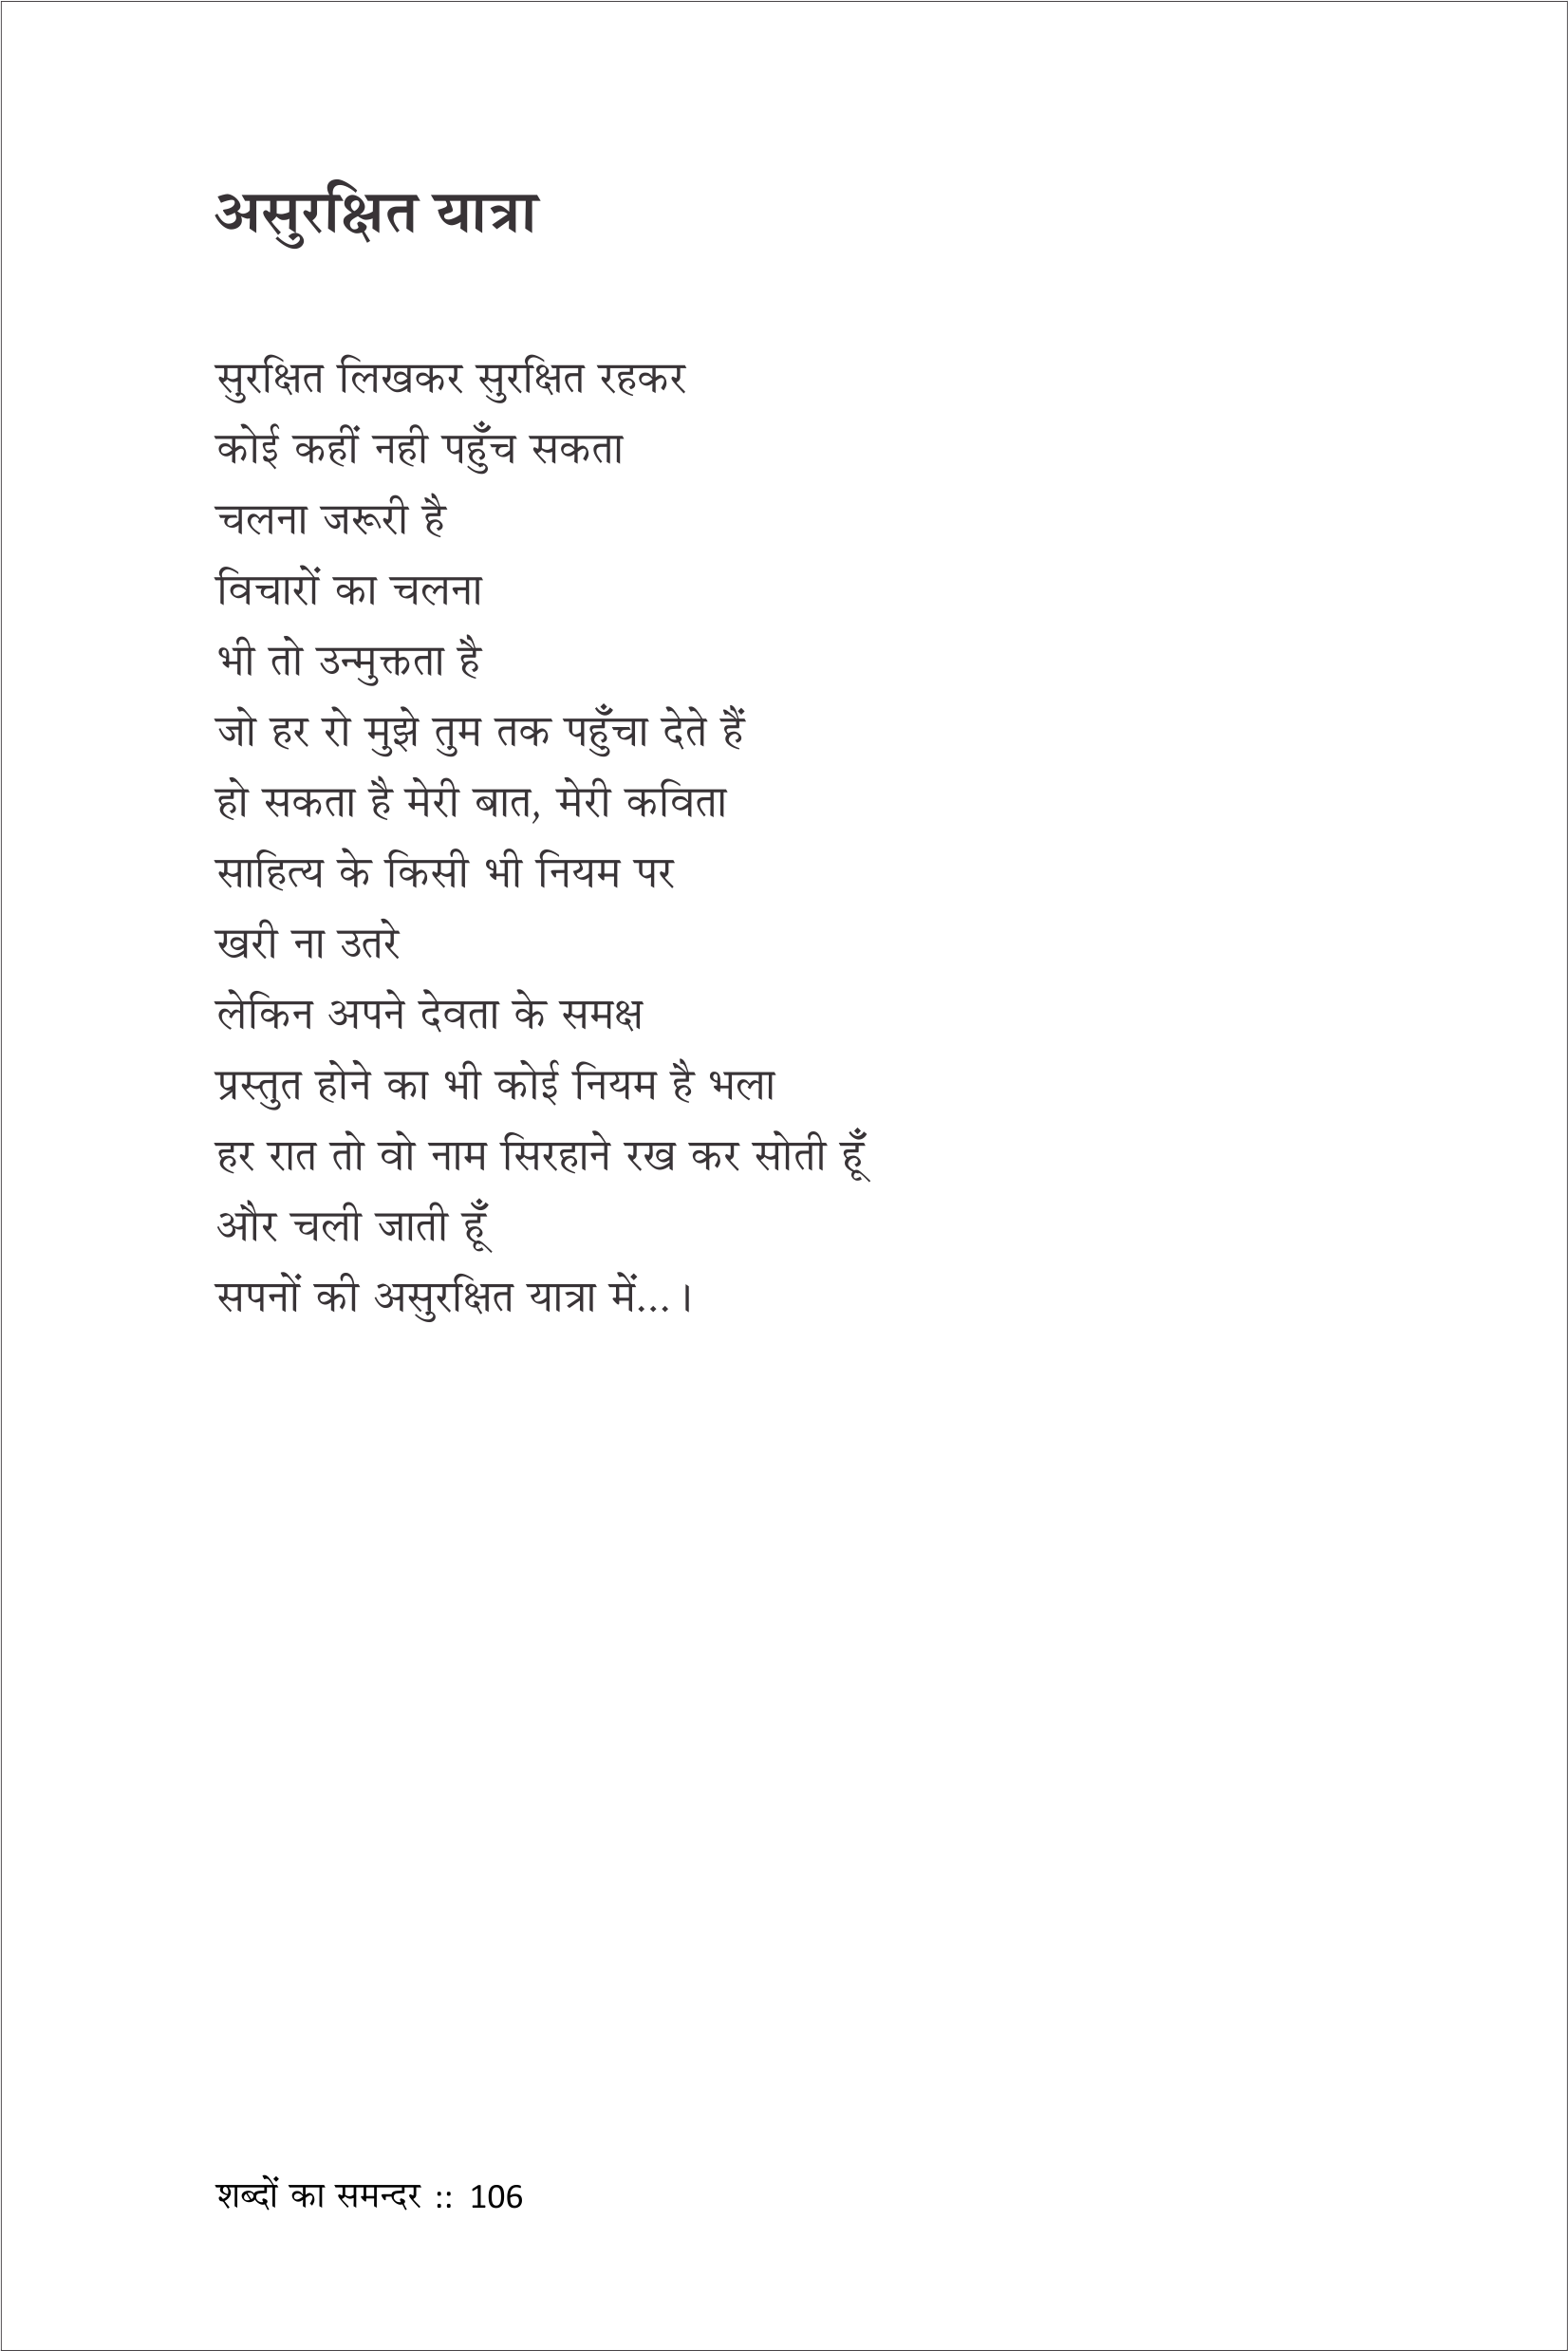 असुरक्षित यात्रा
सुरक्षित लिखकर सुरक्षित रहकर
कोई कहीं नही पहुँच सकता
चलना जरूरी है
विचारों का चलना
भी तो उन्मुक्तता है
जो हर रो मुझे तुम तक पहुँचा देते हैं
हो सकता है मेरी बात, मेरी कविता
साहित्य के किसी भी नियम पर
खरी ना उतरे
लेकिन अपने देवता के समक्ष
प्रस्तुत होने का भी कोई नियम है भला
हर रात तो वो नाम सिरहाने रख कर सोती हूँ
और चली जाती हूँ
सपनों की असुरक्षित यात्रा में...।
शब्दों का समन्दर :: 106